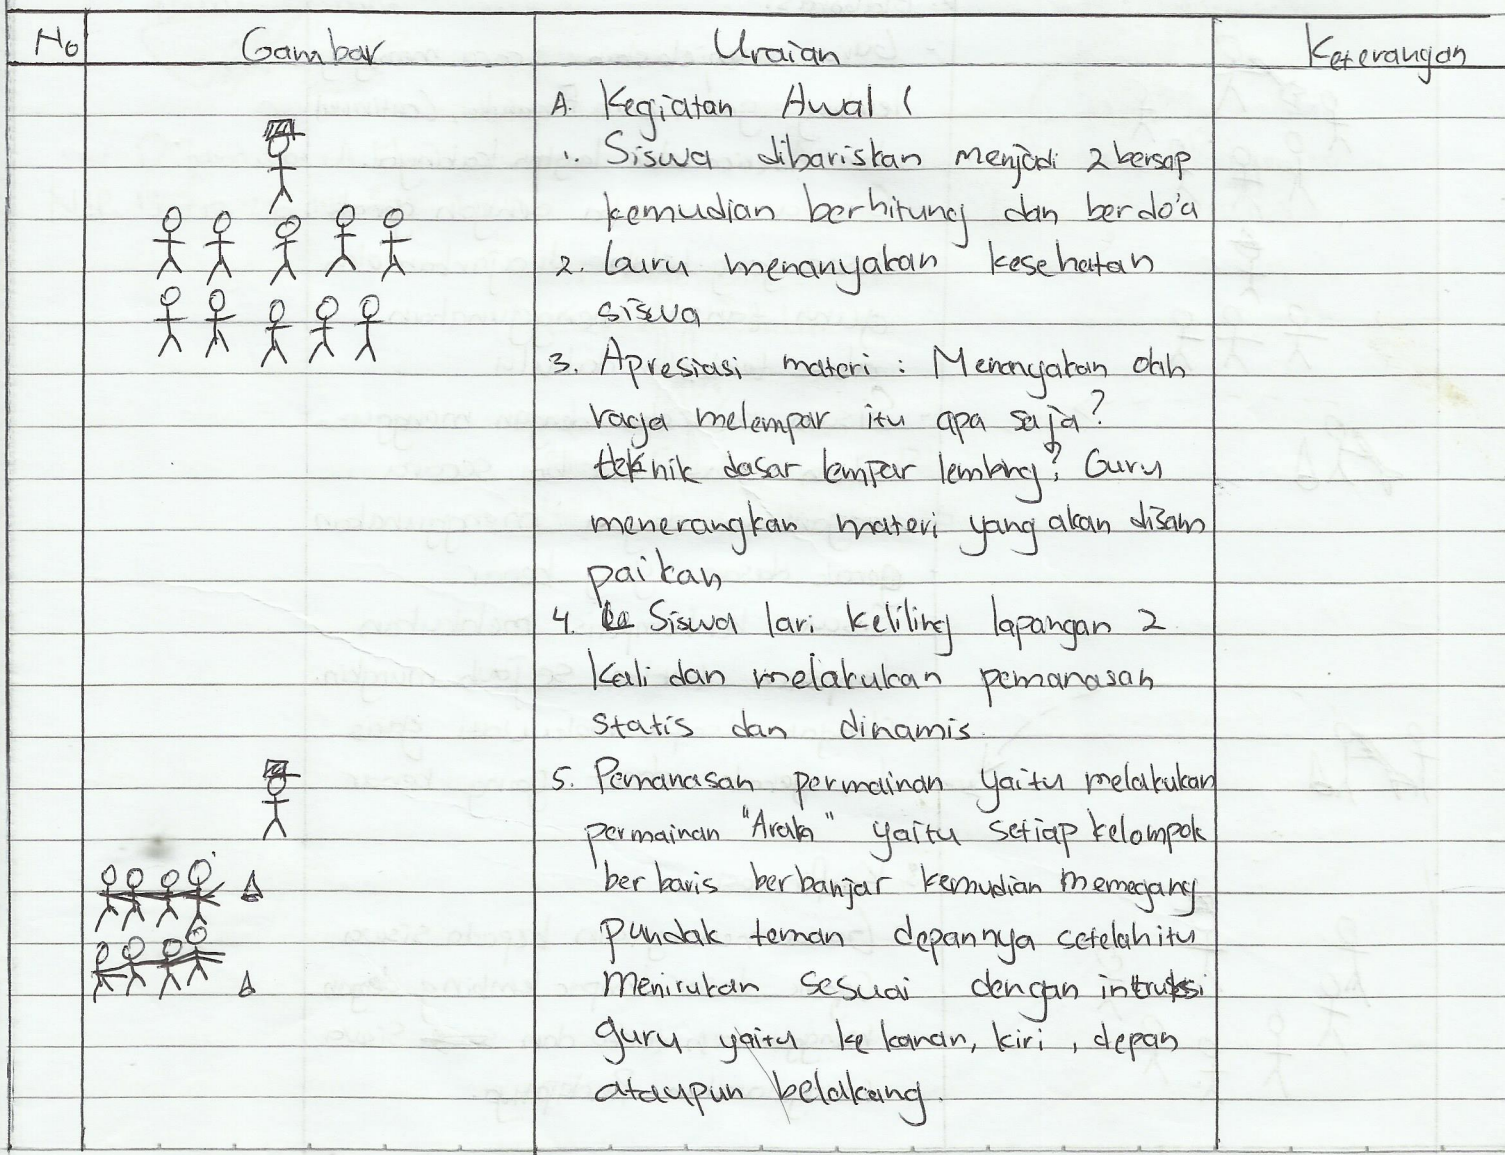 No Gambar Uraian Keterangan
A. Kegiatan Awal (
1. Siswa dibariskan menjadi 2 bersap
kemudian berhitung dan berdo'a
2. Guru menanyakan kesehatan
siswa
3. Apresiasi materi : Menanyakan olah
raga melempar itu apa saja?
teknik dasar lempar lembing? Guru
menerangkan materi yang akan disam
paikan
4. Siswa lari keliling lapangan 2
kali dan melakukan pemanasan
statis dan dinamis.
5. Pemanasan permainan yaitu melakukan
permainan "Arah" yaitu setiap kelompok
berbaris berbanjar kemudian memegang
pundak teman depannya setelah itu
menirukan sesuai dengan intruksi
guru yaitu ke kanan, kiri, depan
ataupun belakang.